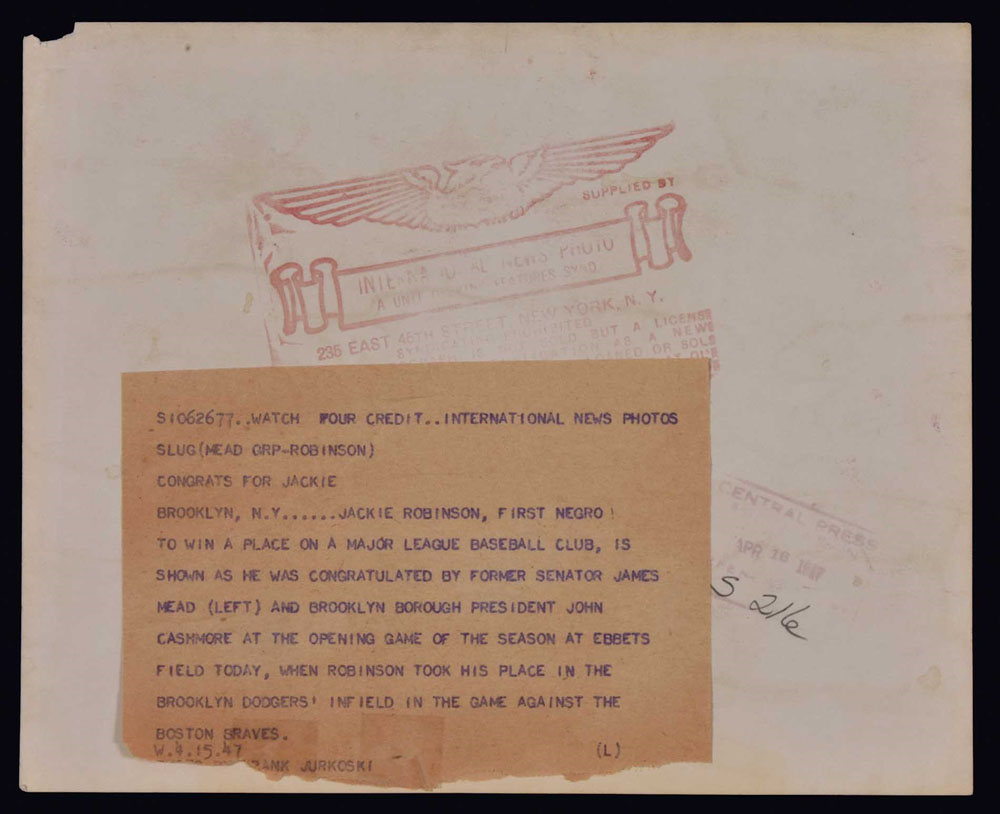 SUPPLIED BY
INTERNATIONAL NEWS PHOTO
A UNIT OF KING FEATURES SYND.
235 EAST 45TH STREET, NEW YORK, N. Y.
SYNDICATING PROHIBITED
IS NOT SOLD BUT A LICENSE
PUBLICATION AS A NEWS
LOANED OR SOLD
S1062677..WATCH YOUR CREDIT..INTERNATIONAL NEWS PHOTOS
SLUG(MEAD GRP-ROBINSON)
CONGRATS FOR JACKIE
BROOKLYN, N.Y......JACKIE ROBINSON, FIRST NEGRO
TO WIN A PLACE ON A MAJOR LEAGUE BASEBALL CLUB, IS
SHOWN AS HE WAS CONGRATULATED BY FORMER SENATOR JAMES
MEAD (LEFT) AND BROOKLYN BOROUGH PRESIDENT JOHN
CASHMORE AT THE OPENING GAME OF THE SEASON AT EBBETS
FIELD TODAY, WHEN ROBINSON TOOK HIS PLACE IN THE
BROOKLYN DODGERS' INFIELD IN THE GAME AGAINST THE
BOSTON BRAVES.
W.4.15.47 (L)
FRANK JURKOSKI
CENTRAL PRESS
APR 16 1947
S 216